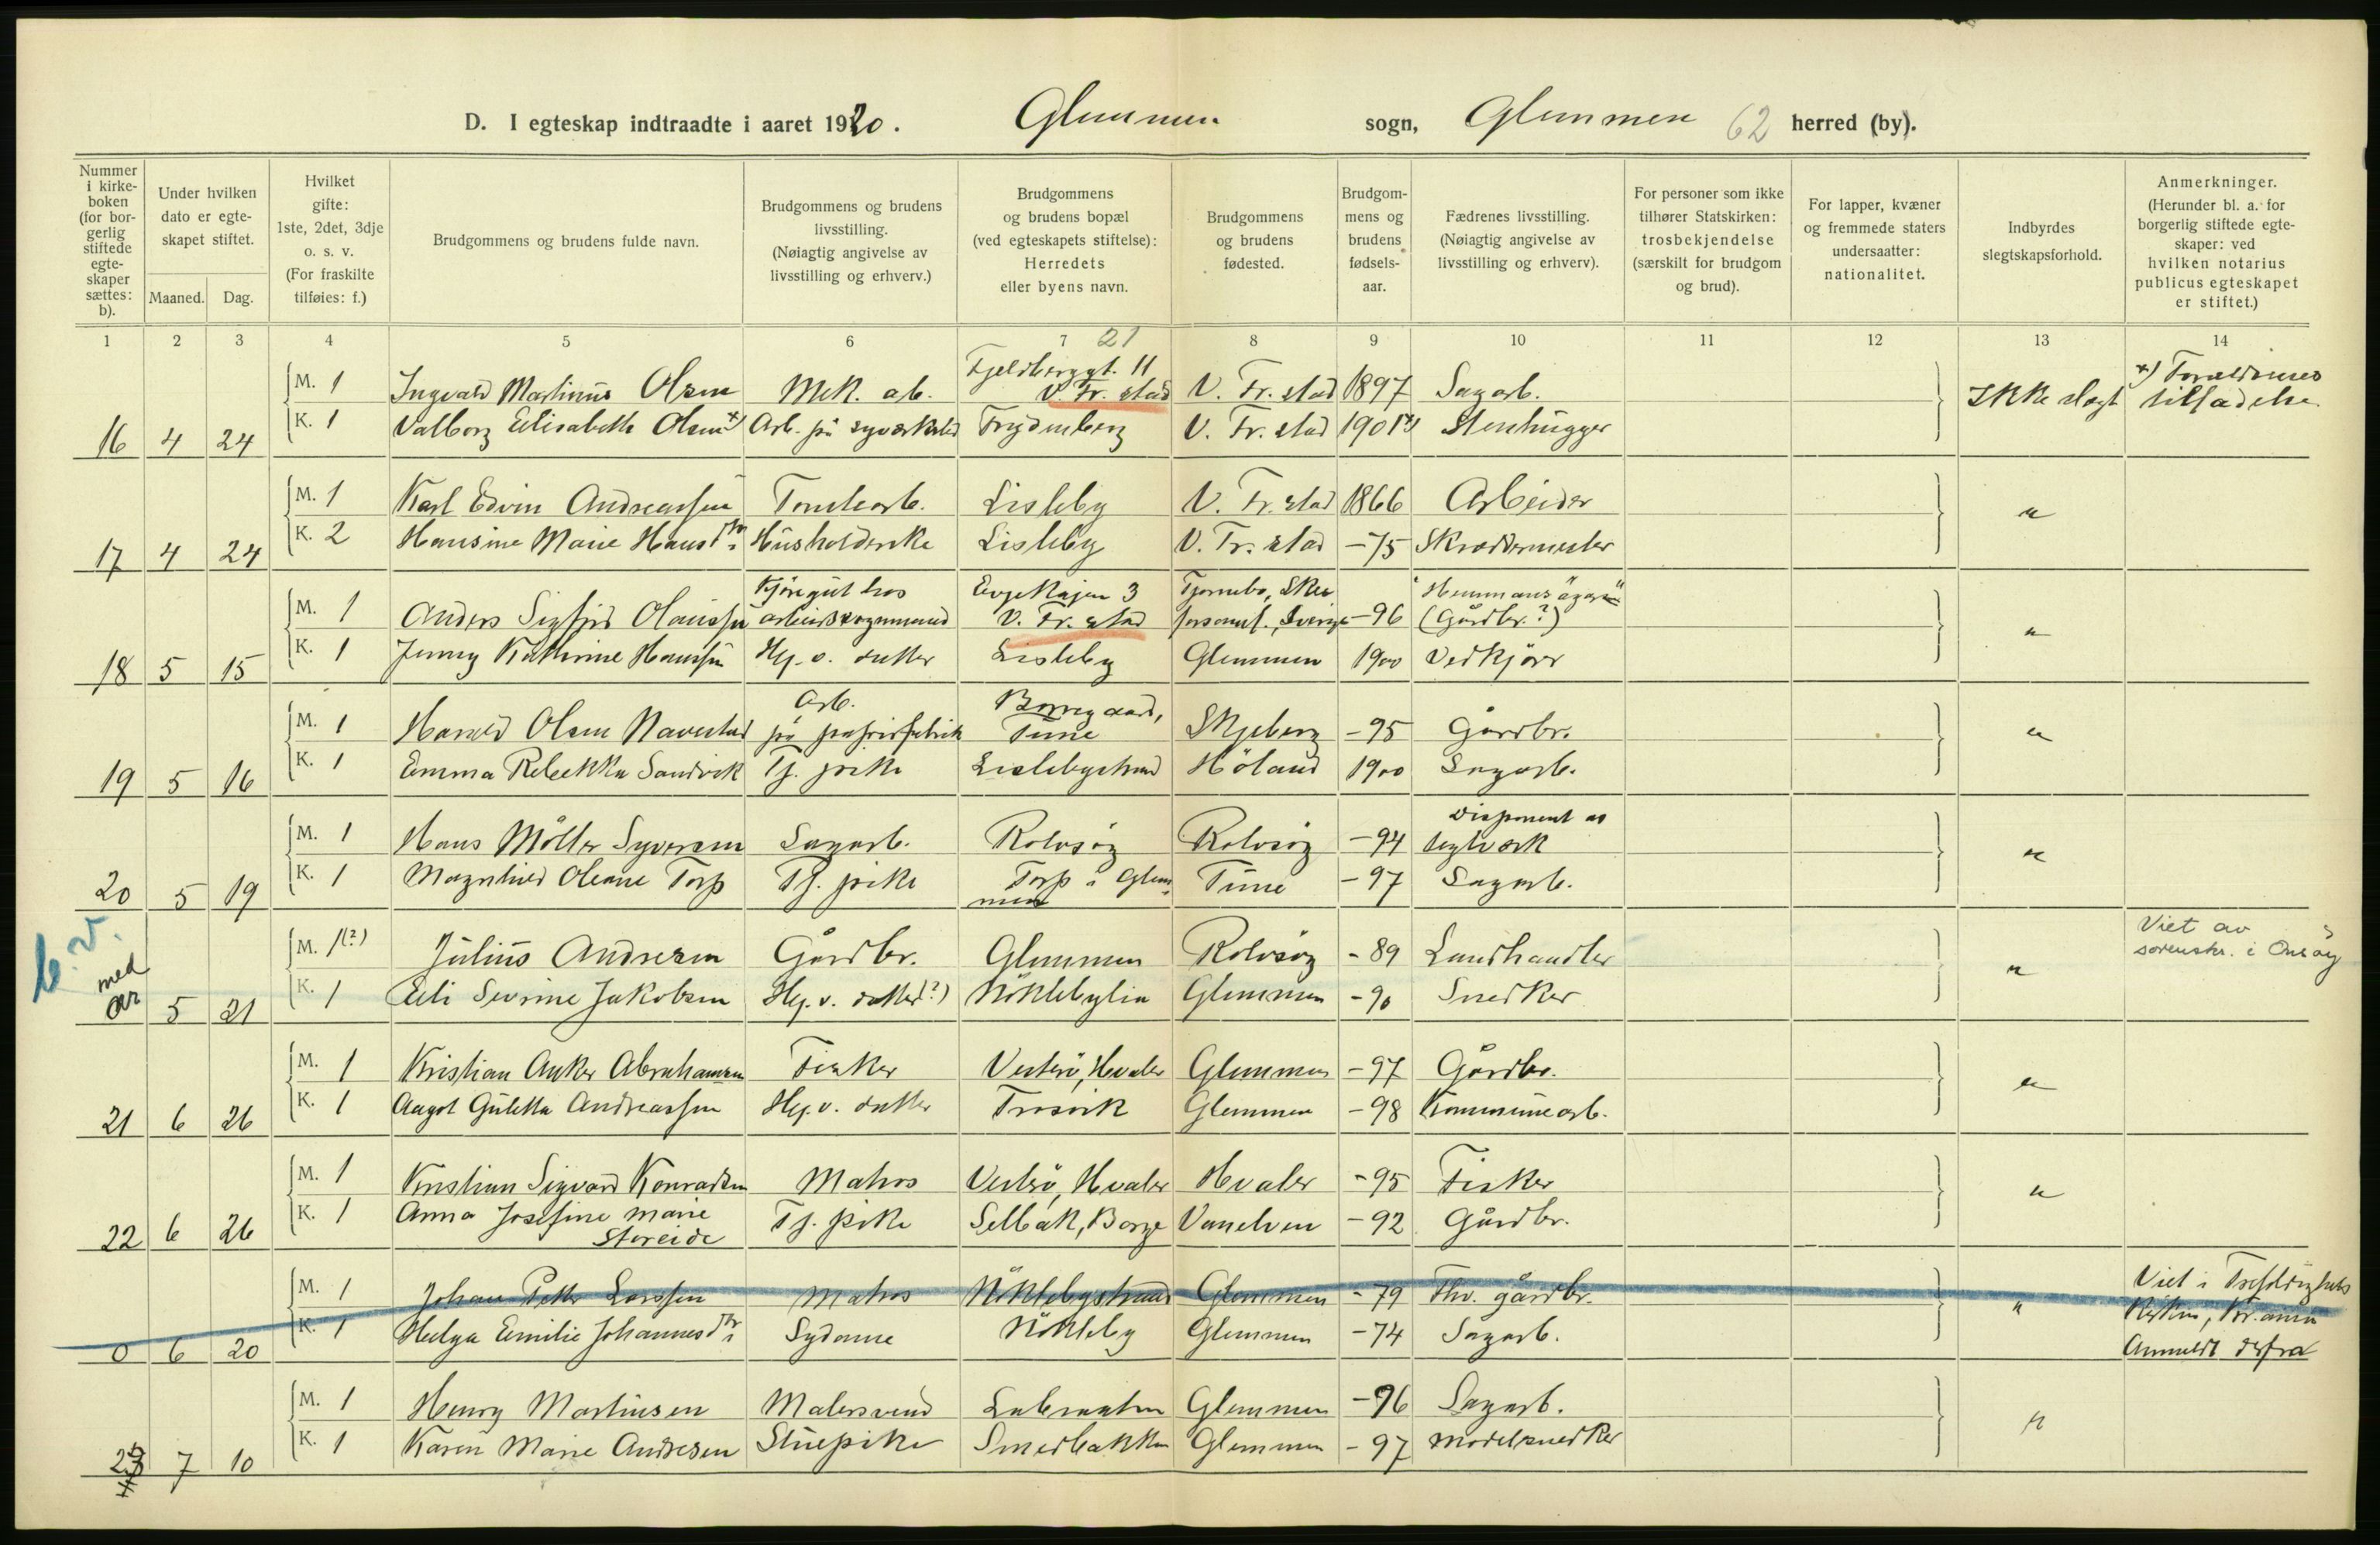 D. I egteskap indtraadte i aaret 1920. Glemmen sogn, Glemmen 62 herred (by).
Nummer i kirkeboken (for borgerlig stiftede egteskaper sættes: b).
Under hvilken dato er egteskapet stiftet.
Maaned. Dag.
Hvilket gifte: 1ste, 2det, 3dje o. s. v. (For fraskilte tilføies: f.)
Brudgommens og brudens fulde navn.
Brudgommens og brudens livsstilling. (Nøiagtig angivelse av livsstilling og erhverv.)
Brudgommens og brudens bopæl (ved egteskapets stiftelse): Herredets eller byens navn.
Brudgommens og brudens fødested.
Brudgommens og brudens fødselsaar.
Fædrenes livsstilling. (Nøiagtig angivelse av livsstilling og erhverv).
For personer som ikke tilhører Statskirken: trosbekjendelse (særskilt for brudgom og brud).
For lapper, kvæner og fremmede staters undersaatter: nationalitet.
Indbyrdes slegtskapsforhold.
Anmerkninger. (Herunder bl. a. for borgerlig stiftede egteskaper: ved hvilken notarius publicus egteskapet er stiftet.)
1 2 3 4 5 6 7 21 8 9 10 11 12 13 14
Fjeldberggt. 11
M. 1 Ingvald Martinus Olsen Mek. arb. V. Fr. stad V. Fr. stad 1897 Sagarb. Ikke slegt *) Forældrenes tilladelse
16 4 24 K. 1 Valborg Elisabeth Olsen *) Arb. på syverksted Frydenberg V. Fr. stad 1901 Stenhugger
M. 1 Karl Edvin Andreassen Tomtearb. Lisleby V. Fr. stad 1866 Arbeider "
17 4 24 K. 2 Hansine Marie Hansdtr. Husholderske Lisleby V. Fr. stad -75 Skræddermester
Kjøregut hos Evjekajen 3 Tjørnebo, Skee Hemmansägare
M. 1 Anders Sigfrid Olausson V. Fr. stad Sverige -96 (Gårdbr.?) "
18 5 15 K. 1 Jenny Kathrine Hansen Hj. v. datter Lisleby Glemmen 1900 Vedkjører
Arb. Borregaard,
M. 1 Harald Olsen Navestad på papirfabrik Tune Skjeberg -95 Gårdbr. "
19 5 16 K. 1 Emma Rebekka Sandvik Tj. pike Lislebystrand Höland 1900 Sagarb.
Disponent av
M. 1 Hans Möller Syversen Sagarb. Rolvsöy Rolvsöy -94 teglverk "
20 5 19 K. 1 Magnhild Oleane Torp Tj. pike Torp i Glemmen Tune -97 Sagarb.
b. v.
M. 1(?) Julius Andresen Gårdbr. Glemmen Rolvsöy -89 Landhandler " Viet av sorenskr. i Onsöy
med av 5 21 K. 1 Elli Sevrine Jakobsen Hj. v. datter(?) Nöklebylia Glemmen -90 Snedker
M. 1 Kristian Anker Abrahamsen Fisker Vesterö, Hvaler Glemmen -97 Gårdbr. "
21 6 26 K. 1 Aagot Guletta Andreassen Hj. v. datter Trosvik Glemmen -98 Kommunearb.
M. 1 Kristian Sigvard Konradsen Matros Vesterö, Hvaler Hvaler -95 Fisker "
22 6 26 K. 1 Anna Josefine Marie Storeide Tj. pike Selbak, Borge Vanelven -92 Gårdbr.
M. 1 Johan Petter Larssen Matros Nöklebystrand Glemmen -79 Fhv. gårdbr. " Viet i Trefoldighets Kirken, Kr.ania
0 6 20 K. 1 Helga Emilie Johannesdtr. Sydame Nökleby Glemmen -74 Sagarb. Anmeldt derfra
M. 1 Henry Martinsen Malersvend Labraaten Glemmen -96 Sagarb. "
23 7 10 K. 1 Karen Marie Andresen Stuepike Smedbakken Glemmen -97 Modelsnedker